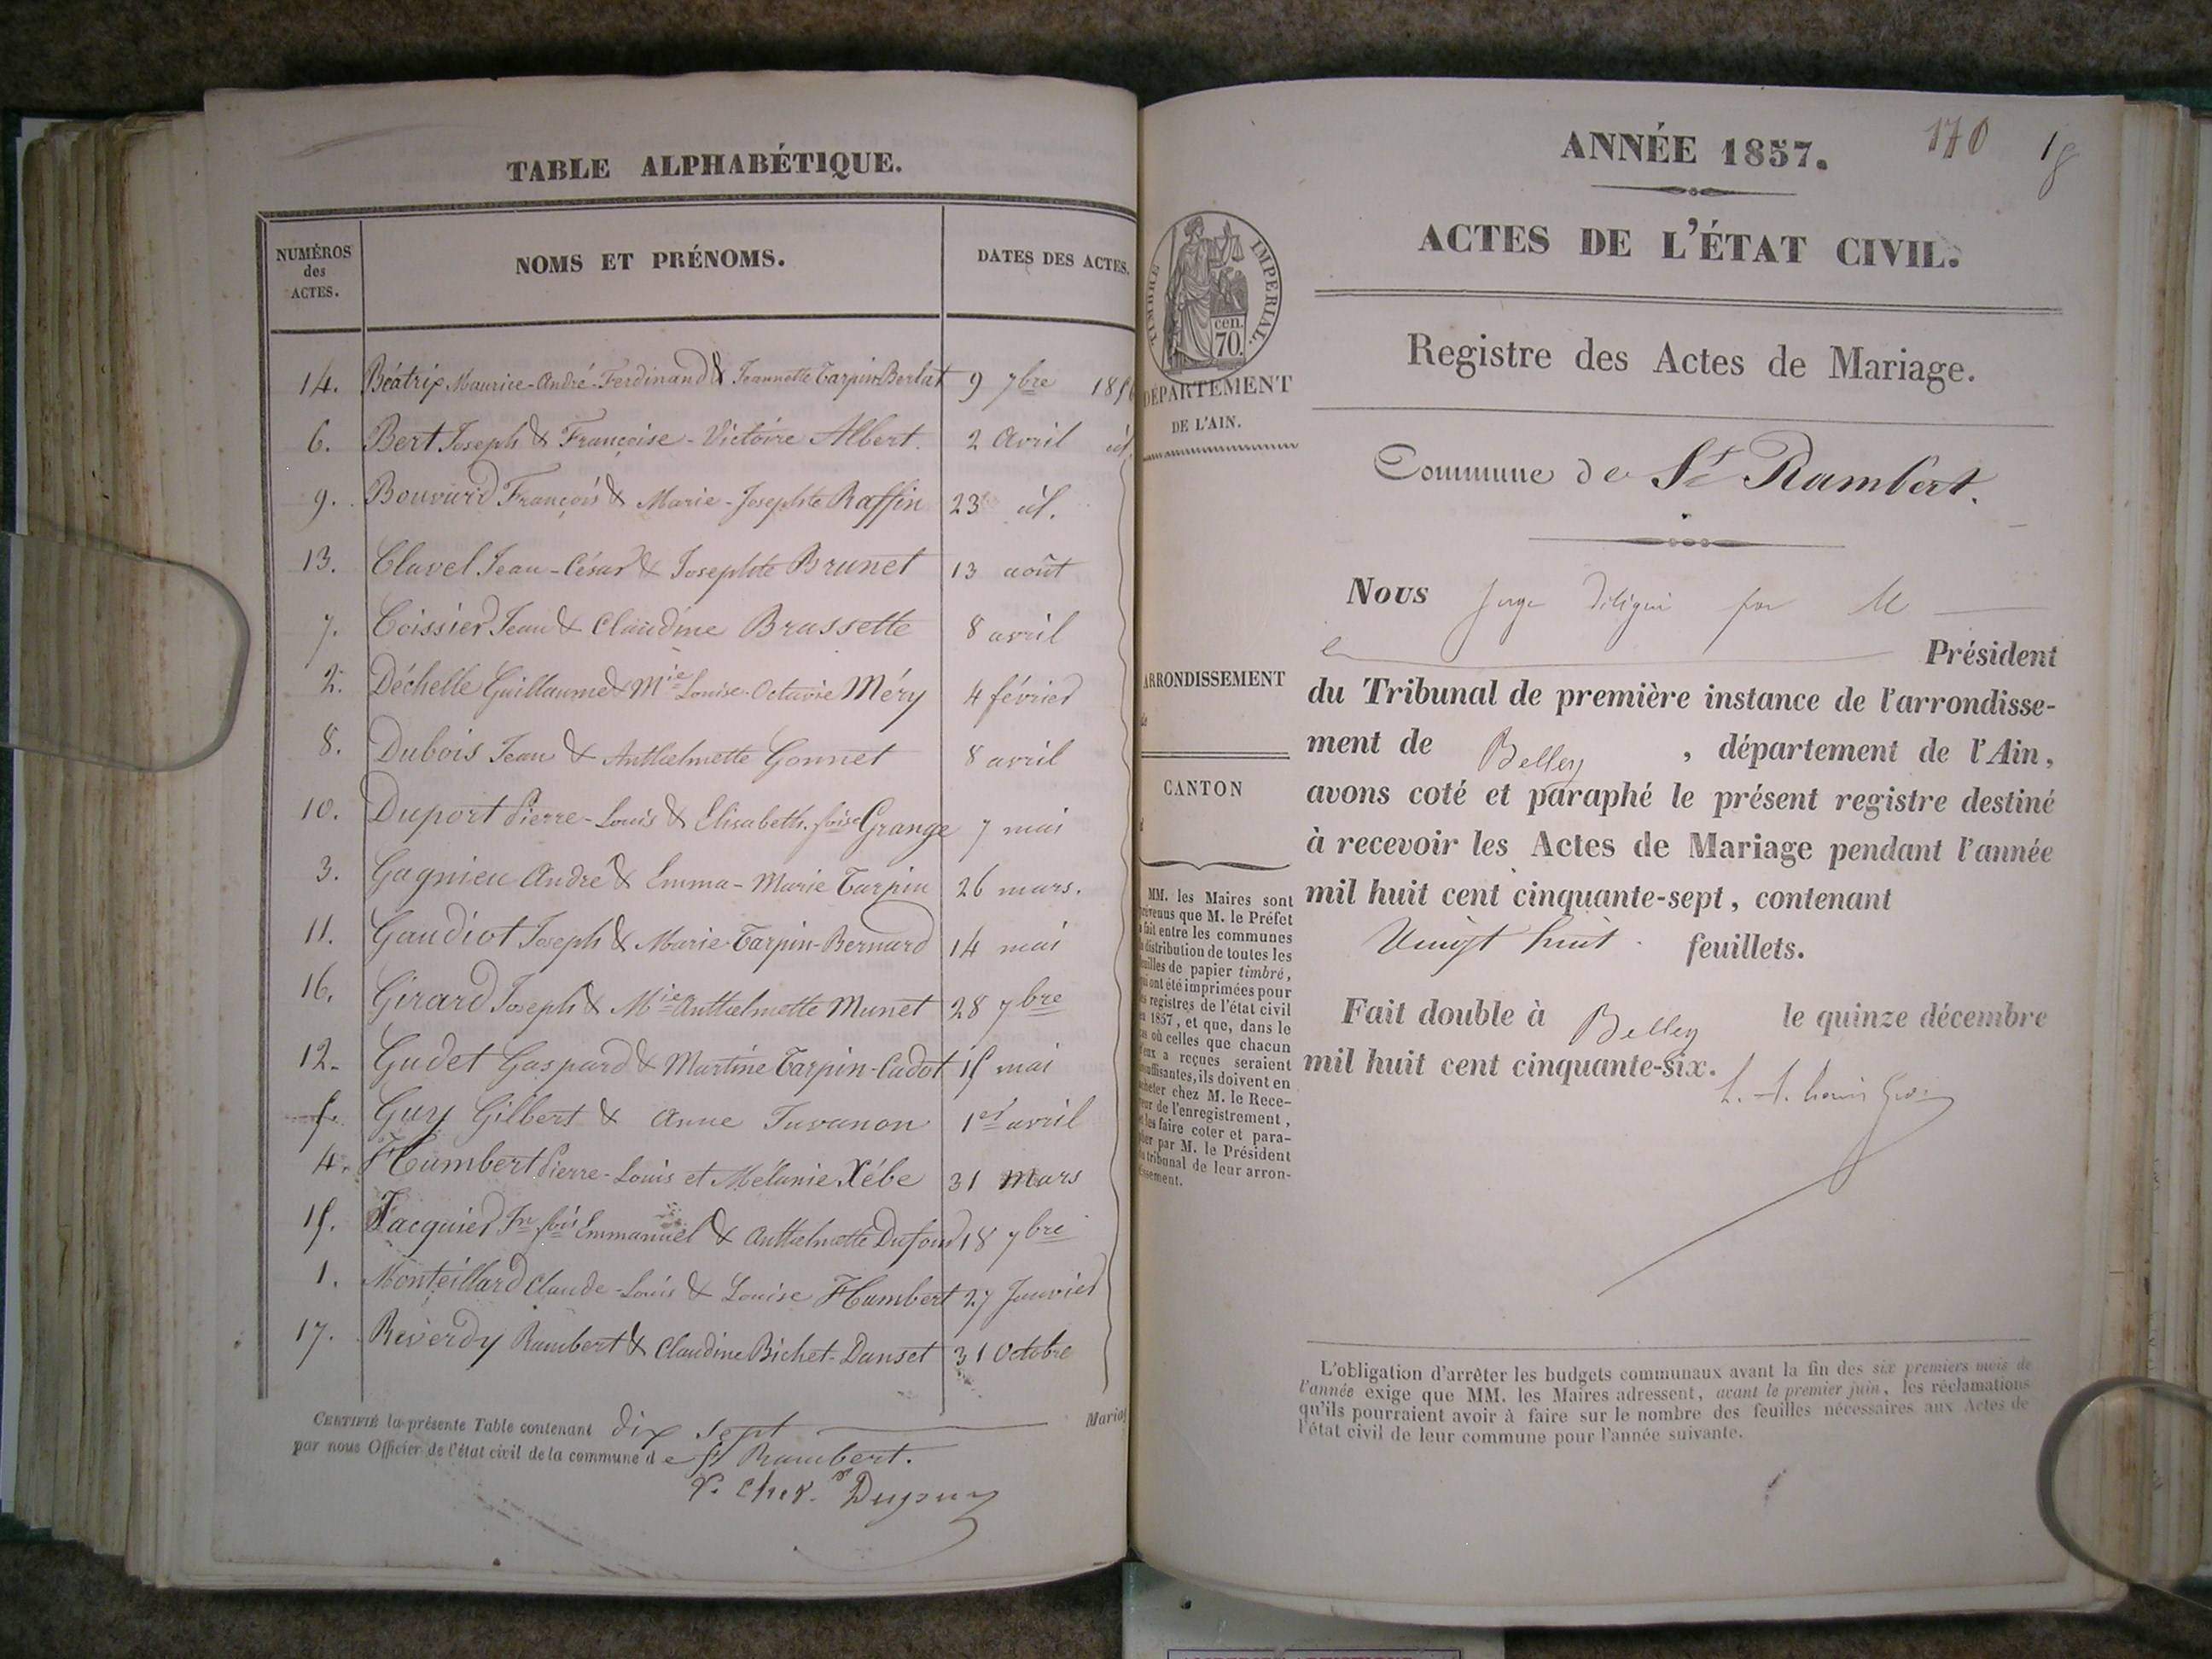 TABLE ALPHABÉTIQUE.
NUMÉROS des ACTES.
NOMS ET PRÉNOMS.
DATES DES ACTES.
14. Béatrix Maurice-André-Ferdinand & Jeannette Tarpin-Berlat 9 7bre 1856
6. Bert Joseph & Françoise-Victoire Albert. 2 avril id.
9. Bouvard François & Marie-Josephte Raffin 23 id.
13. Clavel Jean-César & Josephte Brunet 13 août
7. Coissier Jean & Claudine Brassette 8 avril
2. Déchelle Guillaume & Mie Louise-Octavie Méry 4 février
8. Dubois Jean & Anthelmette Gonnet 8 avril
10. Duport Pierre-Louis & Elisabeth-foise Grange 7 mai
3. Gagnieu André & Emma-Marie Tarpin 26 mars.
11. Gaudiot Joseph & Marie Tarpin-Bernard 14 mai
16. Girard Joseph & Mie Anthelmette Munet 28 7bre
12. Gudet Gaspard & Martine Tarpin-Cadot 15 mai
5. Guy Gilbert & Anne Juvanon 1er avril
4. Humbert Pierre-Louis et Mélanie Xébe 31 Mars
15. Jacquier Jn fois Emmanuel & Anthelmette Dufour 18 7bre
1. Monteillard Claude-Louis & Louise Humbert 27 Janvier
17. Reverdy Rambert & Claudine Bichet-Danset 31 Octobre
CERTIFIÉ la présente Table contenant dix sept Mariag
par nous Officier de l'état civil de la commune de St Rambert.
Dupuy
170 18
ANNÉE 1857.
ACTES DE L'ÉTAT CIVIL.
TIMBRE IMPÉRIAL.
cen. 70.
DÉPARTEMENT
DE L'AIN.
Registre des Actes de Mariage.
Commune de St Rambert.
Nous Juge délégué par M
Président
du Tribunal de première instance de l'arrondisse-
ment de Belley, département de l'Ain,
avons coté et paraphé le présent registre destiné
à recevoir les Actes de Mariage pendant l'année
mil huit cent cinquante-sept, contenant
Vingt huit feuillets.
Fait double à Belley le quinze décembre
mil huit cent cinquante-six.
ARRONDISSEMENT
CANTON
MM. les Maires sont
prévenus que M. le Préfet
a fait entre les communes
la distribution de toutes les
feuilles de papier timbré,
qui ont été imprimées pour
les registres de l'état civil
en 1857, et que, dans le
cas où celles que chacun
d'eux a reçues seraient
insuffisantes, ils doivent en
acheter chez M. le Rece-
veur de l'enregistrement,
et les faire coter et para-
pher par M. le Président
du tribunal de leur arron-
dissement.
L'obligation d'arrêter les budgets communaux avant la fin des six premiers mois de
l'année exige que MM. les Maires adressent, avant le premier juin, les réclamations
qu'ils pourraient avoir à faire sur le nombre des feuilles nécessaires aux Actes de
l'état civil de leur commune pour l'année suivante.